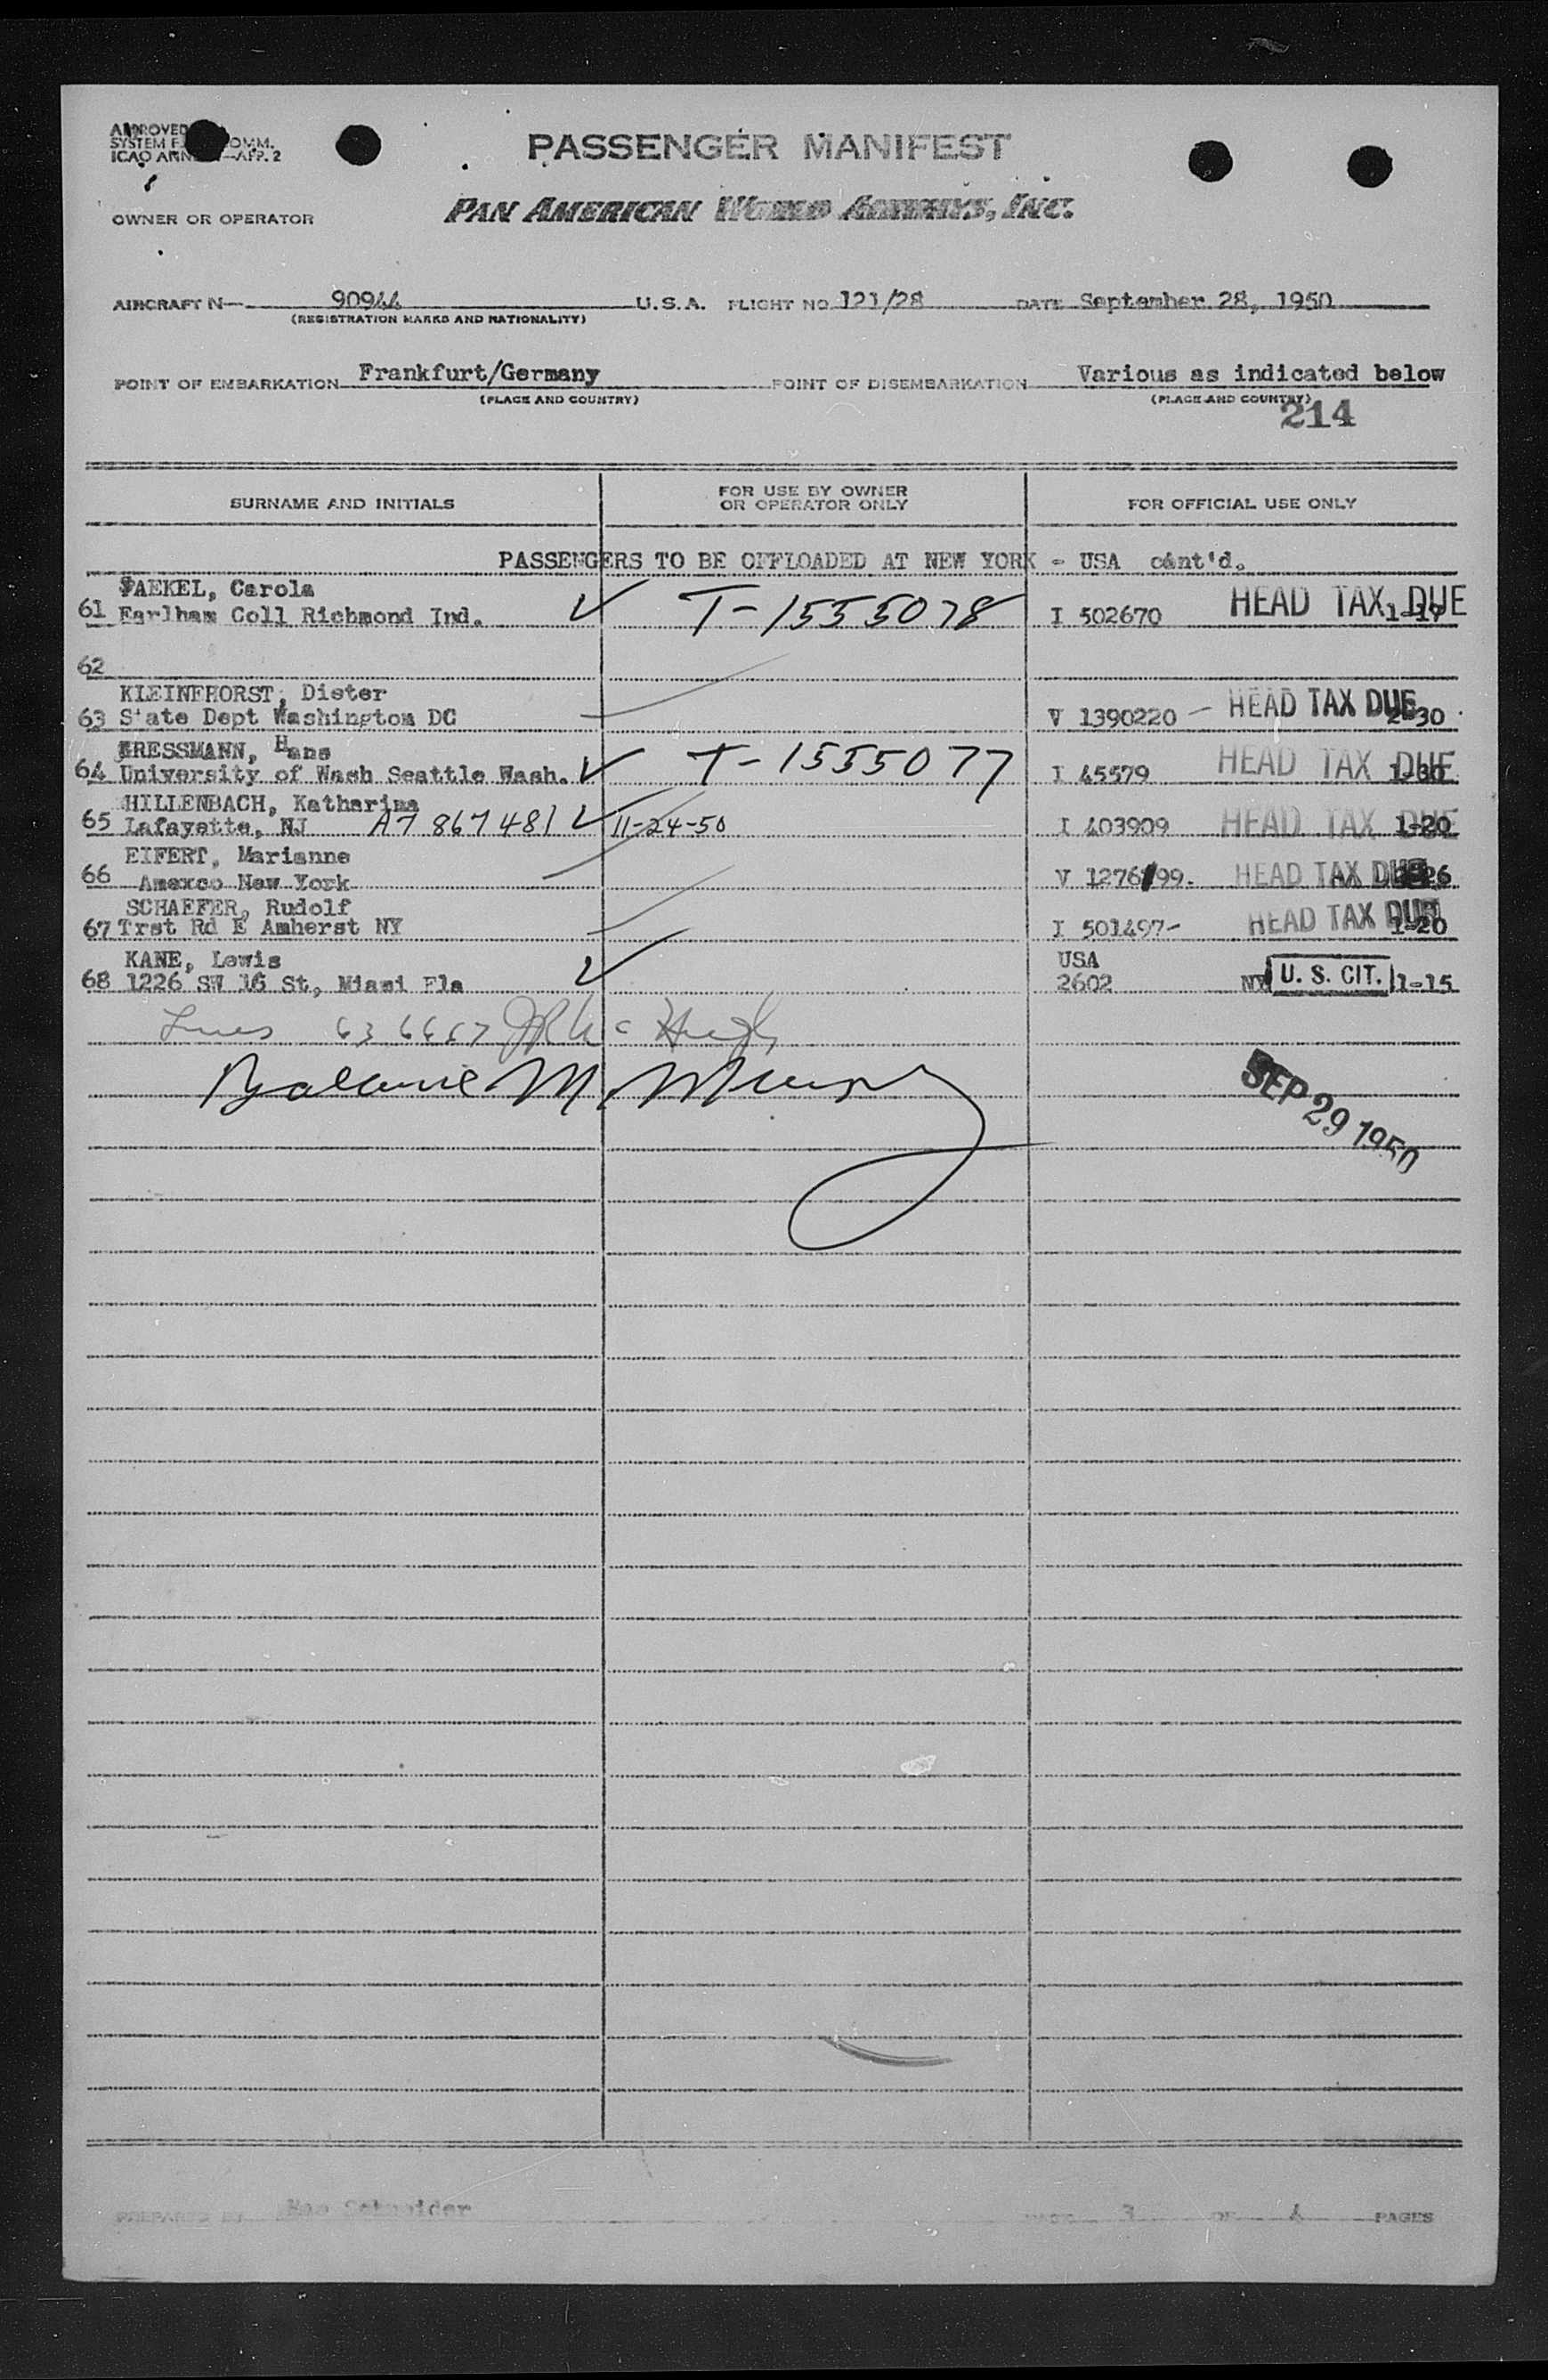 PASSENGER MANIFEST
OWNER OR OPERATOR PAN AMERICAN WORLD AIRWAYS, INC.
AIRCRAFT N— 90944 U.S.A. FLIGHT NO 121/28 DATE September 28, 1950
(REGISTRATION MARKS AND NATIONALITY)
POINT OF EMBARKATION Frankfurt/Germany POINT OF DISEMBARKATION Various as indicated below
(PLACE AND COUNTRY) (PLACE AND COUNTRY)
214
SURNAME AND INITIALS FOR USE BY OWNER OR OPERATOR ONLY FOR OFFICIAL USE ONLY
PASSENGERS TO BE OFFLOADED AT NEW YORK - USA cont'd.
Carola
61 Earlham Coll Richmond Ind. ✓ T-1555078 I 502670 HEAD TAX DUE 1-17
62
KLEINEHORST, Dieter
63 State Dept Washington DC V 1390220 - HEAD TAX DUE 2-30
Hans
64 University of Wash Seattle Wash. ✓ T-1555077 I 45579 HEAD TAX DUE 1-30
HILLENBACH, Katharina
65 Lafayette, NJ A7 867481 ✓ 11-24-50 I 403909 HEAD TAX DUE 1-20
EIFERT, Marianne
66 Amexco New York V 1276 99. HEAD TAX DUE 26
SCHAEFER, Rudolf
67 Trst Rd E Amherst NY I 501497- HEAD TAX DUE 1-20
KANE, Lewis USA
68 1226 SW 16 St, Miami Fla ✓ 2602 NY U. S. CIT. 1-15
SEP 29 1950
PREPARED BY Schneider PAGE 3 OF 4 PAGES